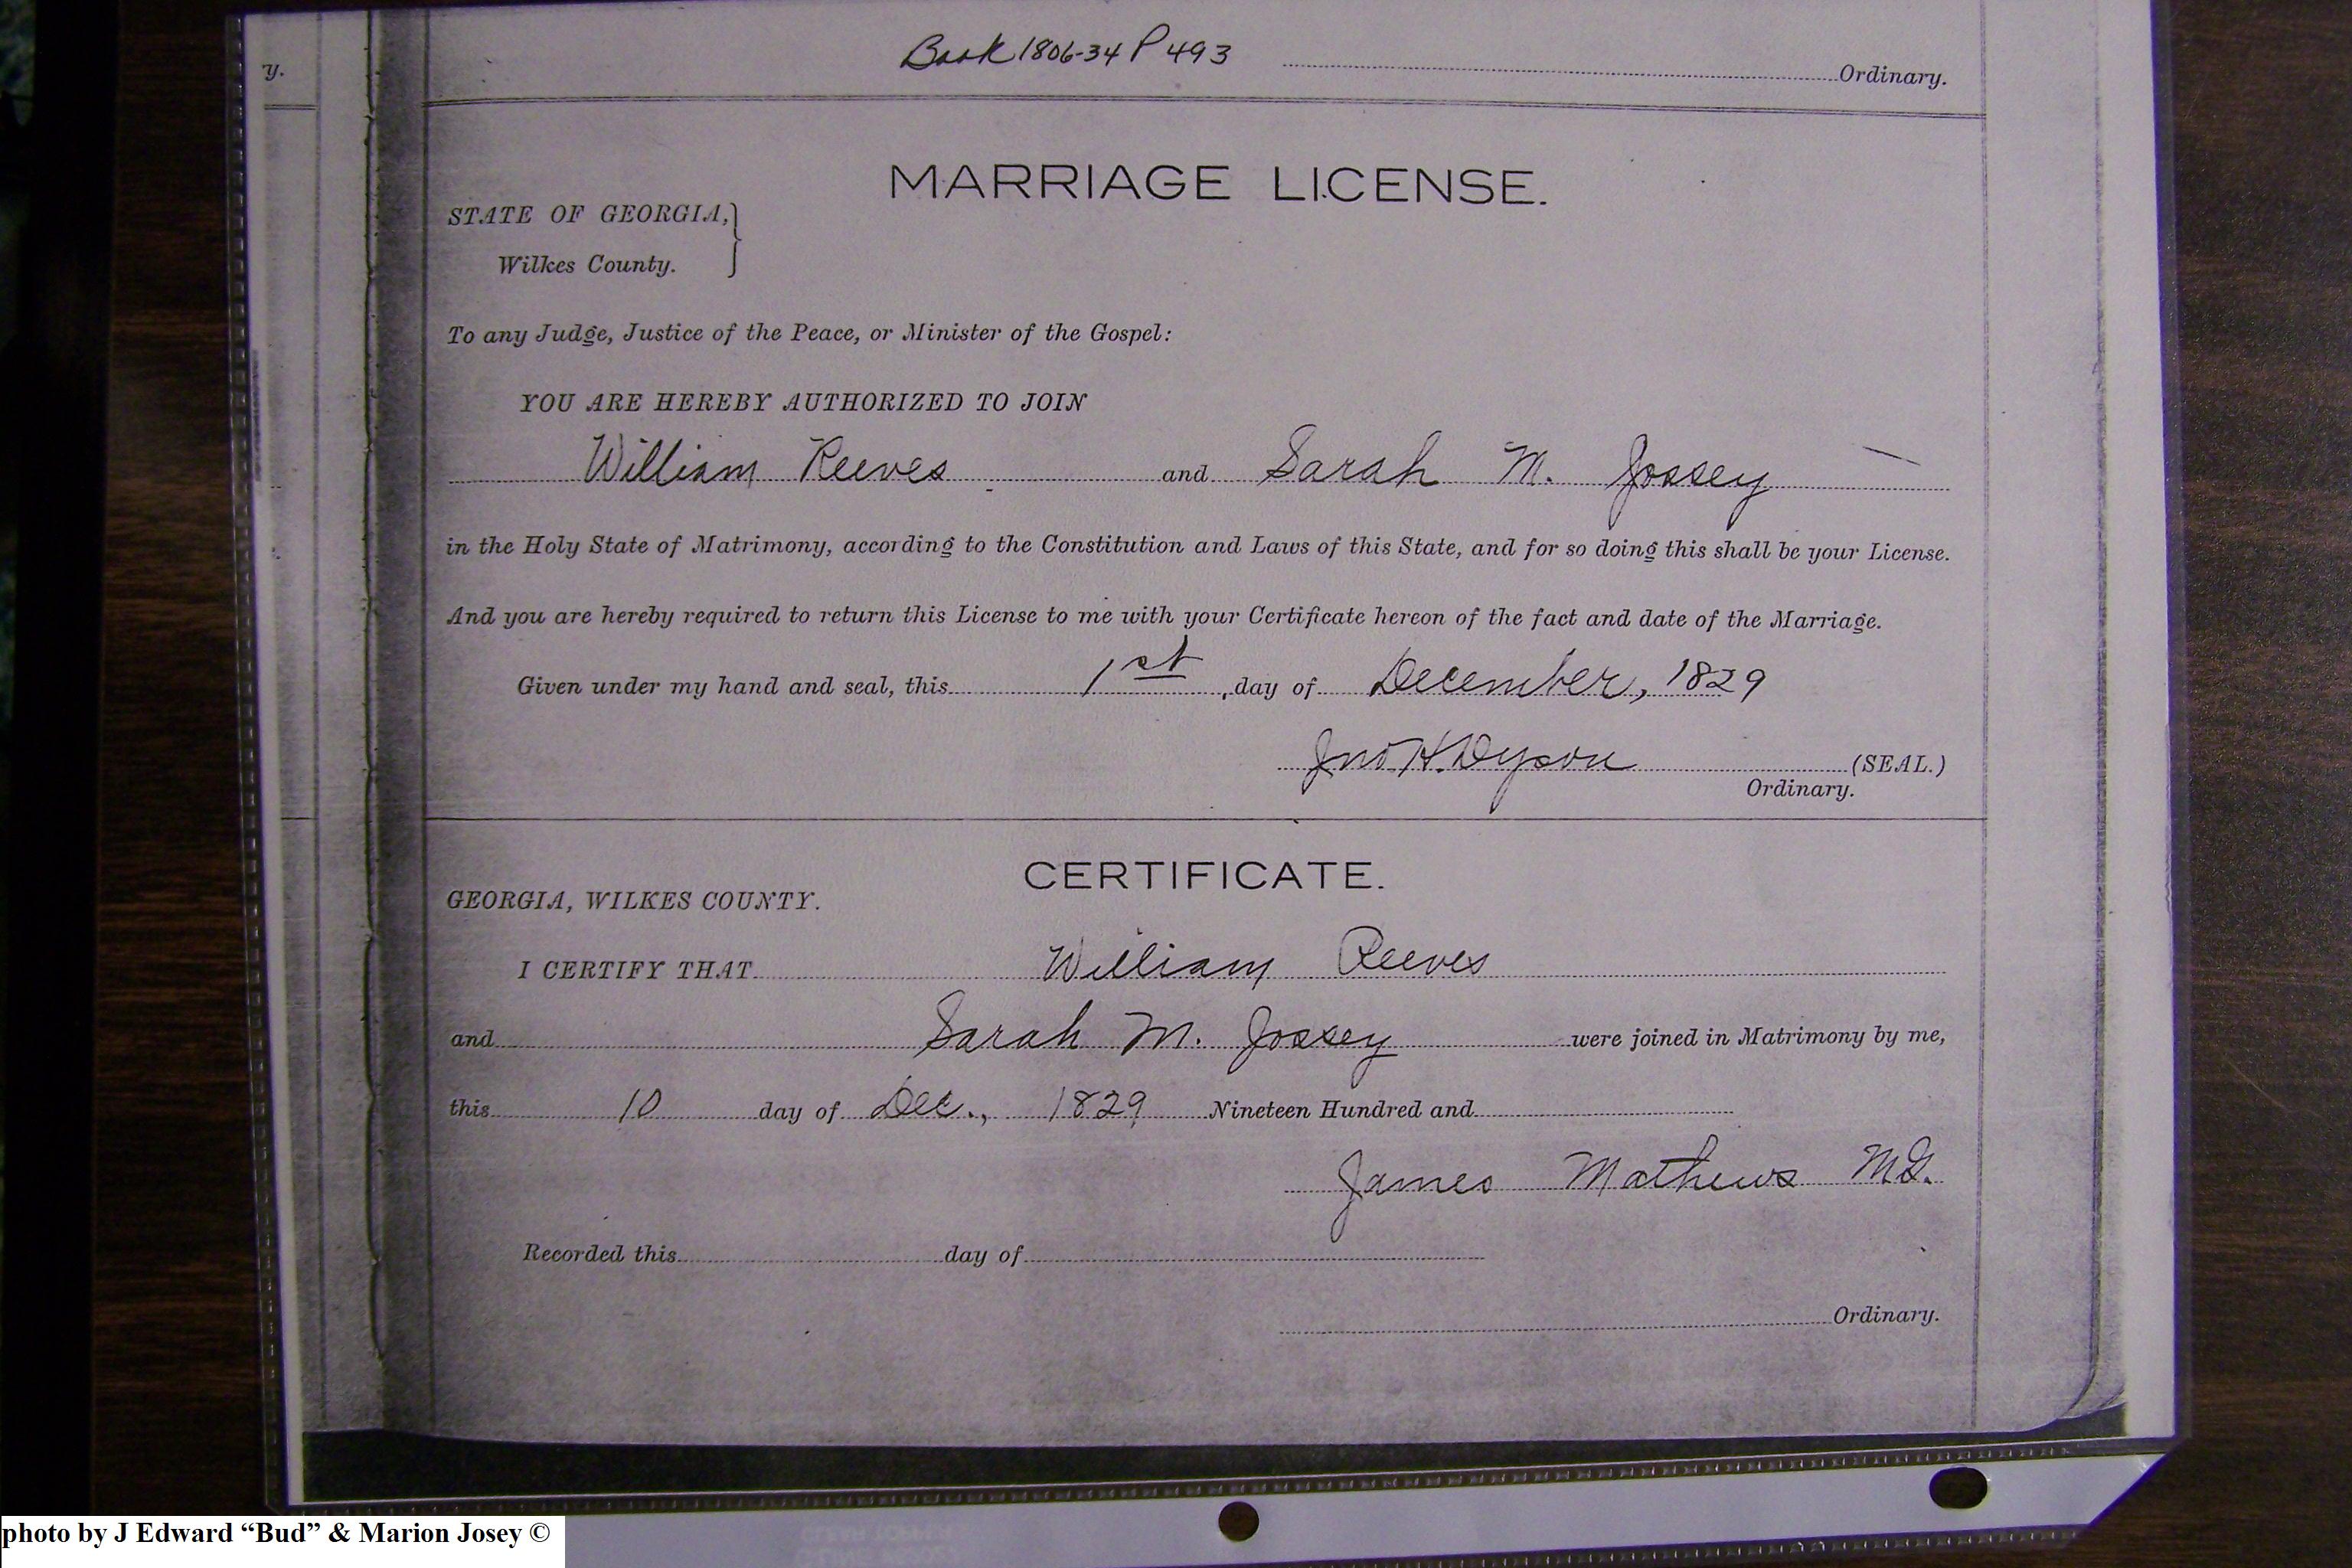 Book 1806-34 P 493
y. Ordinary.
MARRIAGE LICENSE.
STATE OF GEORGIA,
Wilkes County.
To any Judge, Justice of the Peace, or Minister of the Gospel:
YOU ARE HEREBY AUTHORIZED TO JOIN
William Reeves and Sarah M. Jossey
in the Holy State of Matrimony, according to the Constitution and Laws of this State, and for so doing this shall be your License.
And you are hereby required to return this License to me with your Certificate hereon of the fact and date of the Marriage.
Given under my hand and seal, this 1st day of December, 1829
Jno H. Dyson (SEAL.)
Ordinary.
CERTIFICATE.
GEORGIA, WILKES COUNTY.
I CERTIFY THAT William Reeves
and Sarah M. Jossey were joined in Matrimony by me,
this 10 day of Dec., 1829 Nineteen Hundred and
James Mathews MG.
Recorded this day of
Ordinary.
photo by J Edward “Bud” & Marion Josey ©